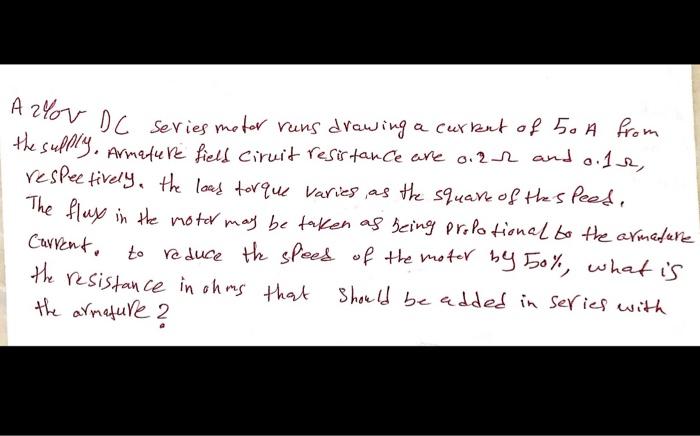 A 240V DC series motor runs drawing a current of 50 A from
the supply. Armature field ciruit resistance are 0.2Ω and 0.1Ω,
respectively. the load torque varies as the square of the speed.
The flux in the motor may be taken as being propotional to the armature
Current. to reduce the speed of the motor by 50%, what is
the resistance in ohms that should be added in series with
the armature?